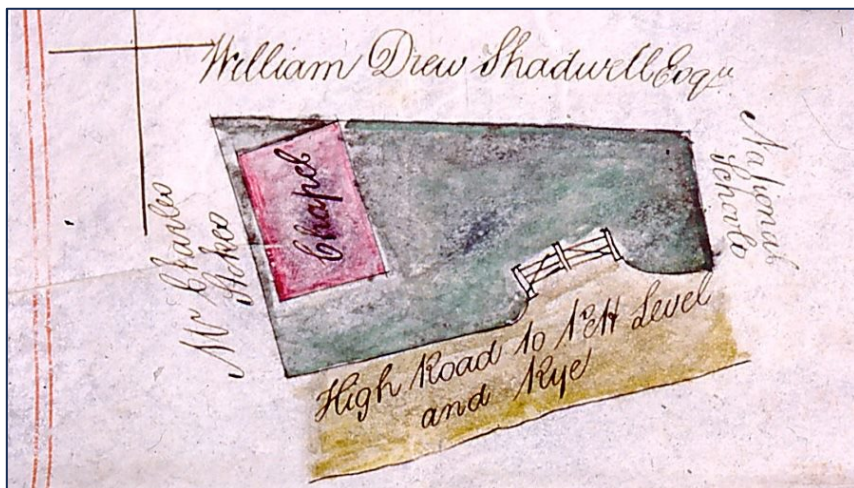 William Drew Shadwell Esqre
National
Schools
Mr Charles
Stokes
Chapel
High Road to Pett Level
and Rye